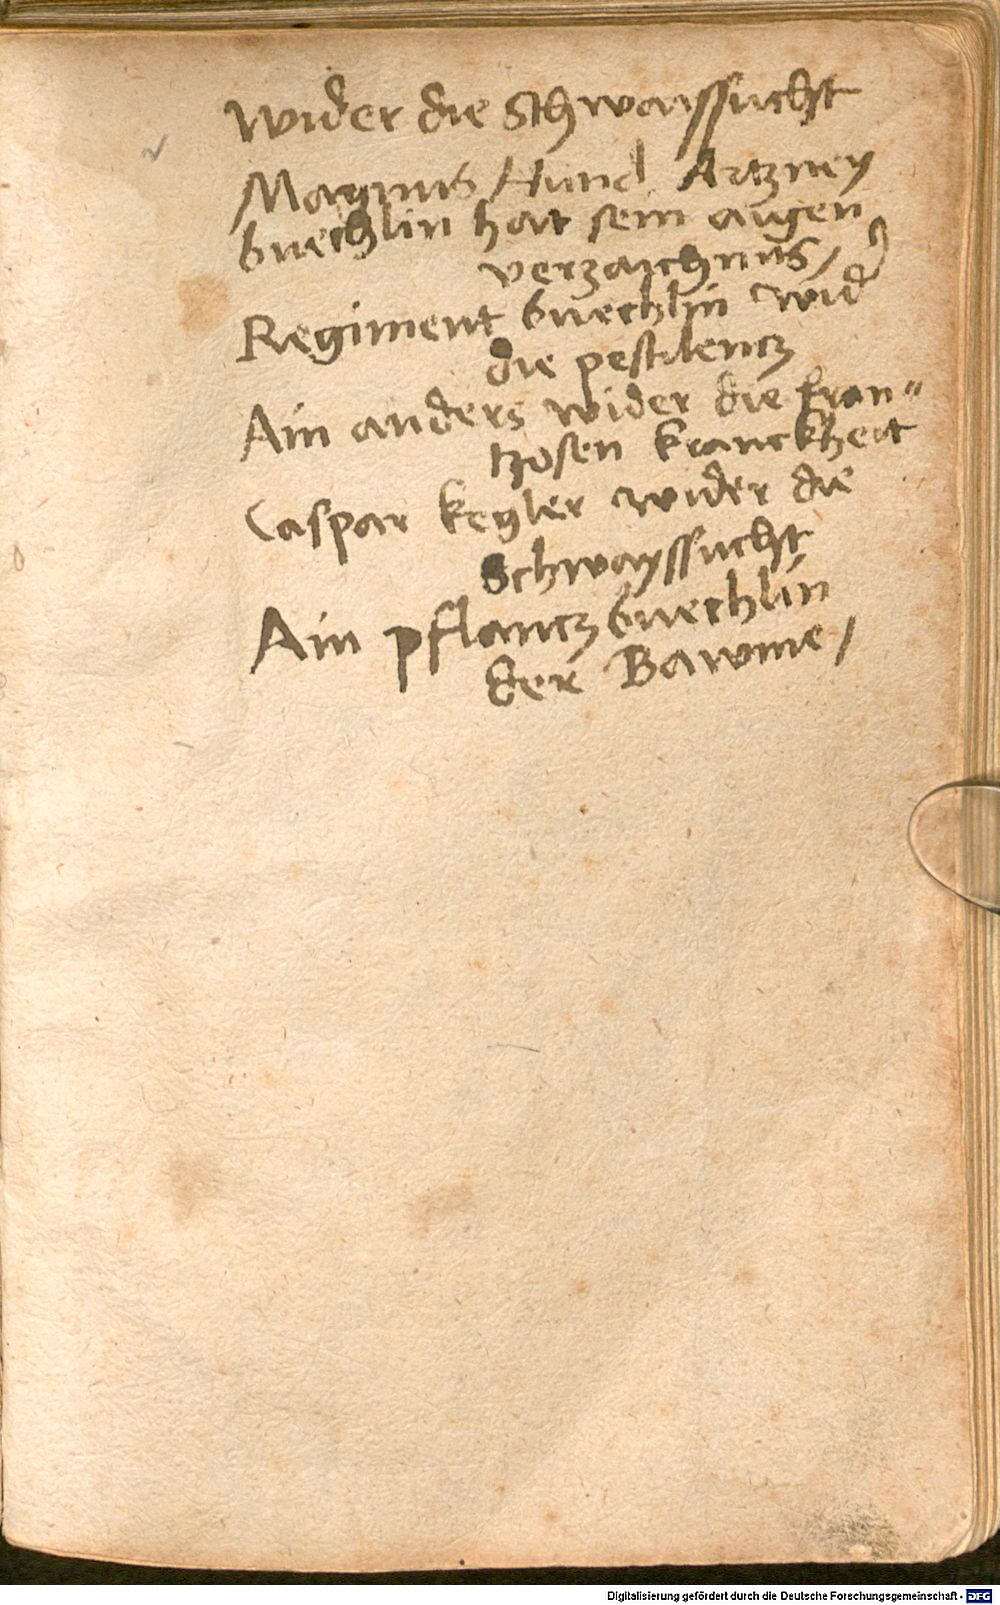 Wider die Schwayssucht
Magnus Hund Artzney
buechlin hat sein aigen
verzaichnus /
Regiment buechlin wid
die pestilentz
Ain anders wider die fran"
tzosen kranckheit
Caspar kegler wider die
Schwayssucht
Ain pflantzbuechlin
der Bawme /
Digitalisierung gefördert durch die Deutsche Forschungsgemeinschaft - DFG